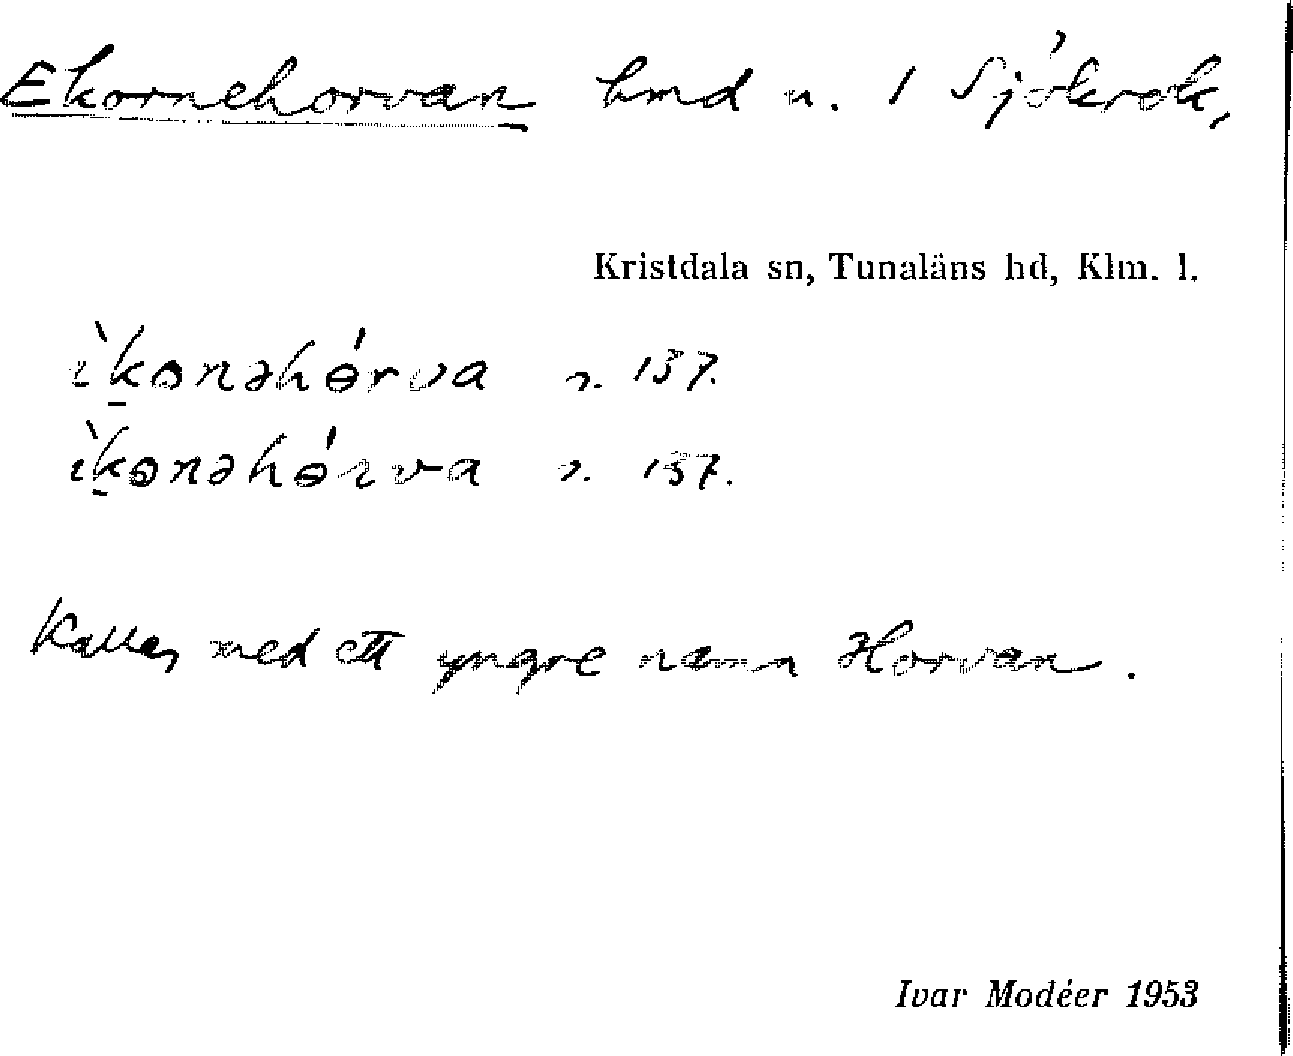 Ekornehorvan hmd u. 1 Sjökrok,
Kristdala sn, Tunaläns hd, Klm. l.
ìkɵnəhɵ́rva s. 137.
ìkɵnəhɵ́rva s. 137.
Kallas med ett yngre namn Horvan.
Ivar Modéer 1953